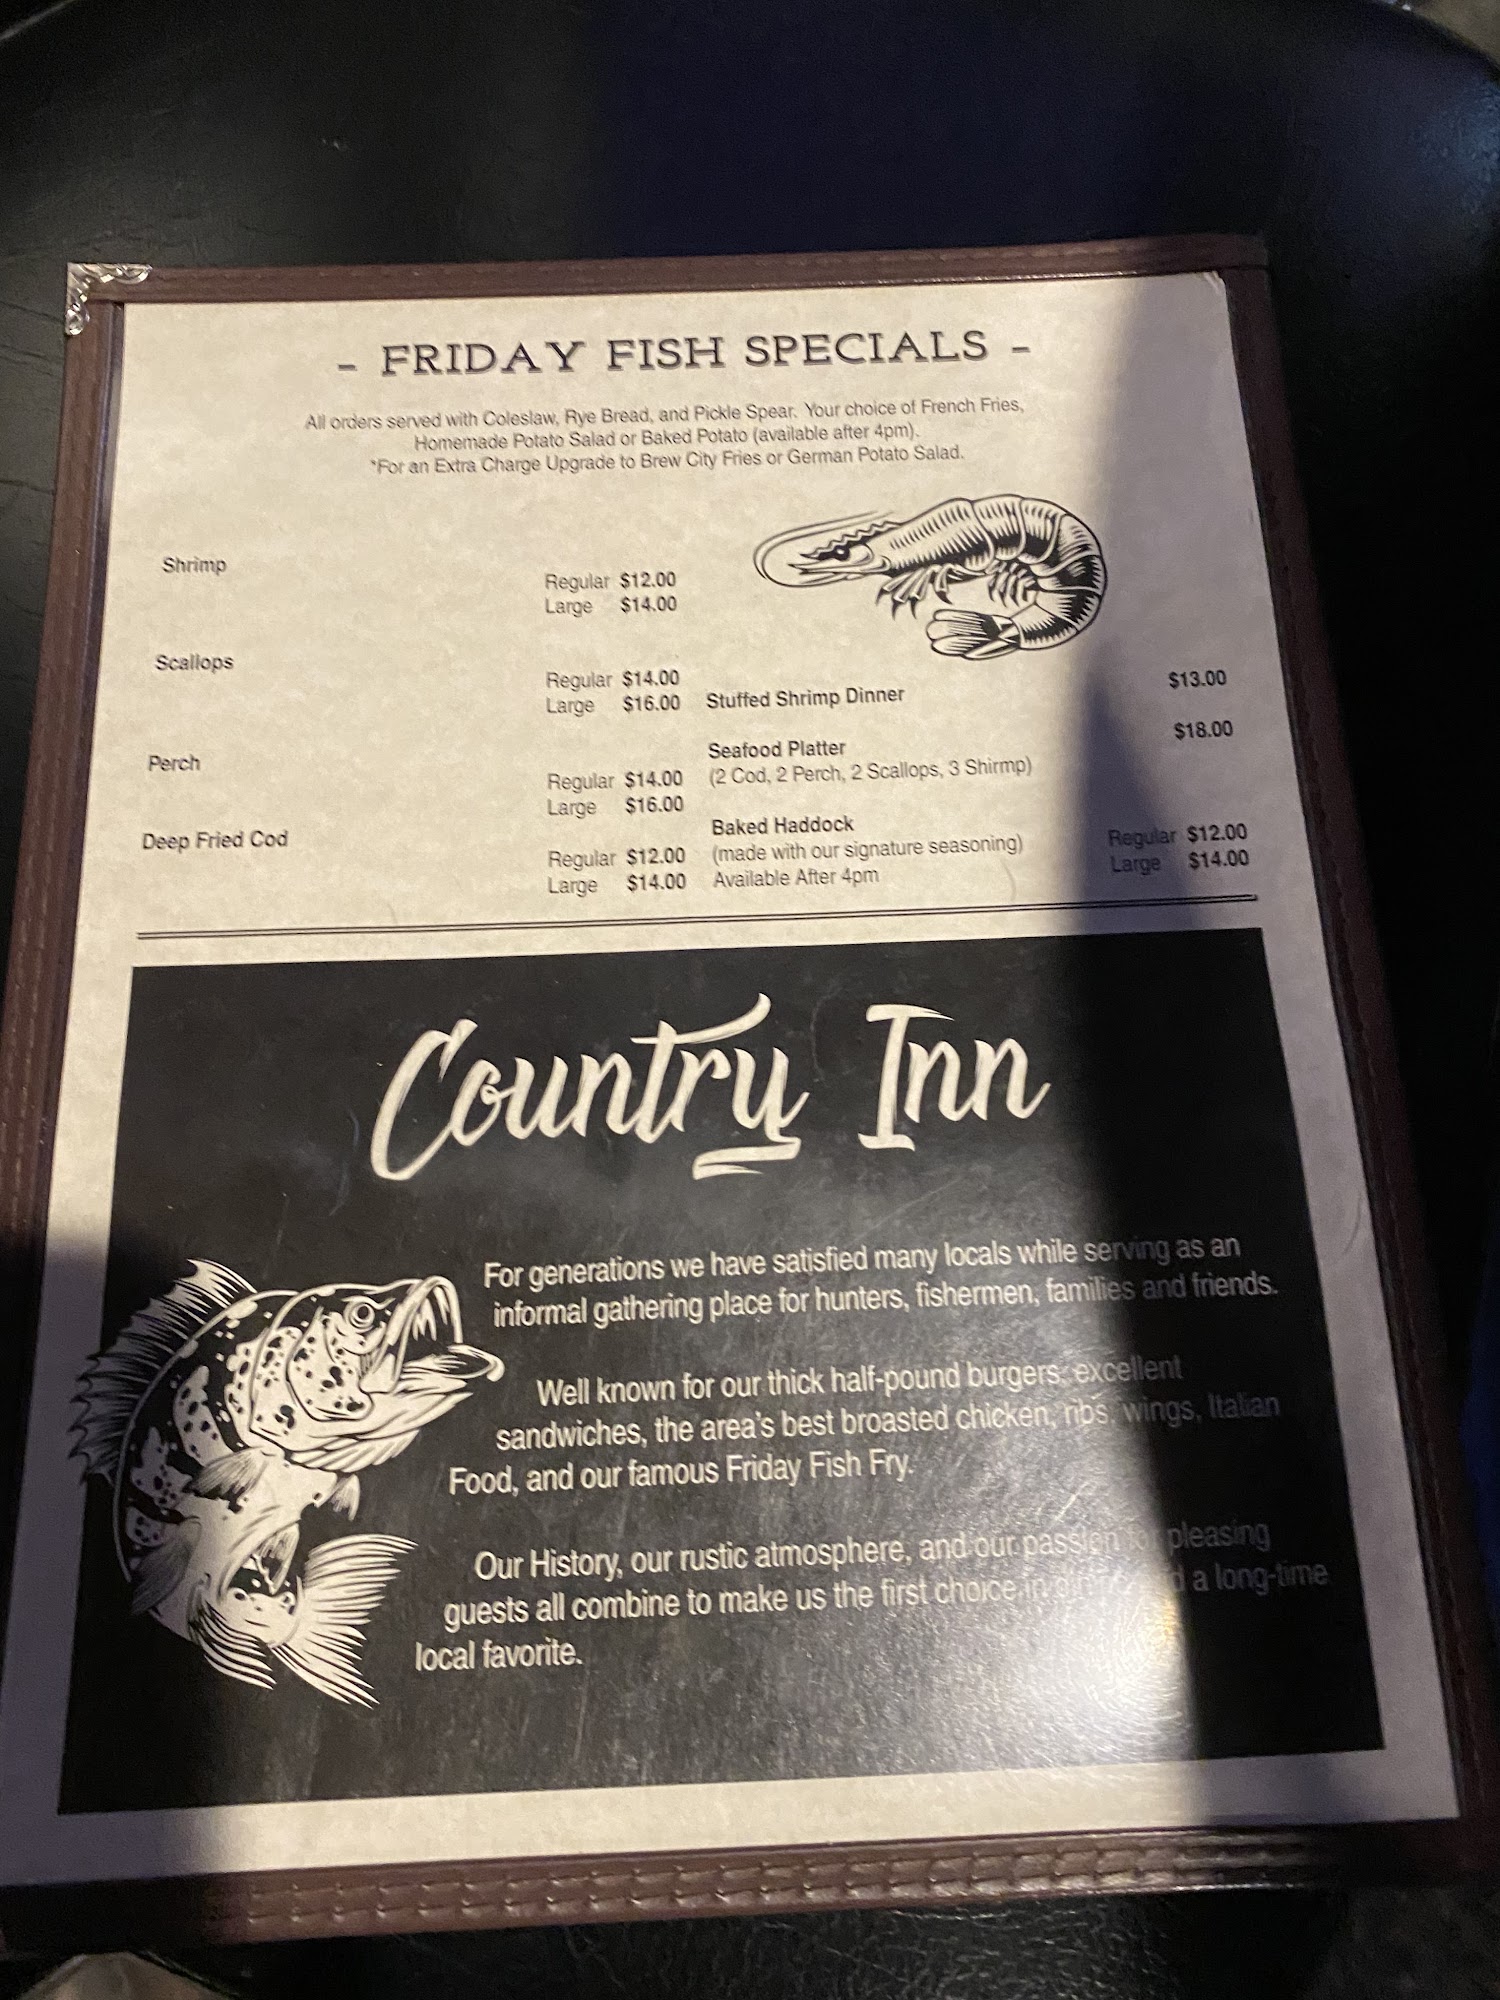 - FRIDAY FISH SPECIALS -
All orders served with Coleslaw, Rye Bread, and Pickle Spear. Your choice of French Fries,
Homemade Potato Salad or Baked Potato (available after 4pm).
*For an Extra Charge Upgrade to Brew City Fries or German Potato Salad.
Shrimp
Regular $12.00
Large $14.00
Scallops
Regular $14.00
Large $16.00
Perch
Regular $14.00
Large $16.00
Deep Fried Cod
Regular $12.00
Large $14.00
Stuffed Shrimp Dinner $13.00
Seafood Platter $18.00
(2 Cod, 2 Perch, 2 Scallops, 3 Shirmp)
Baked Haddock
(made with our signature seasoning) Regular $12.00
Available After 4pm Large $14.00
Country Inn
For generations we have satisfied many locals while serving as an
informal gathering place for hunters, fishermen, families and friends.
Well known for our thick half-pound burgers, excellent
sandwiches, the area's best broasted chicken, ribs, wings, Italian
Food, and our famous Friday Fish Fry.
Our History, our rustic atmosphere, and our passion for pleasing
guests all combine to make us the first choice in a long-time
local favorite.